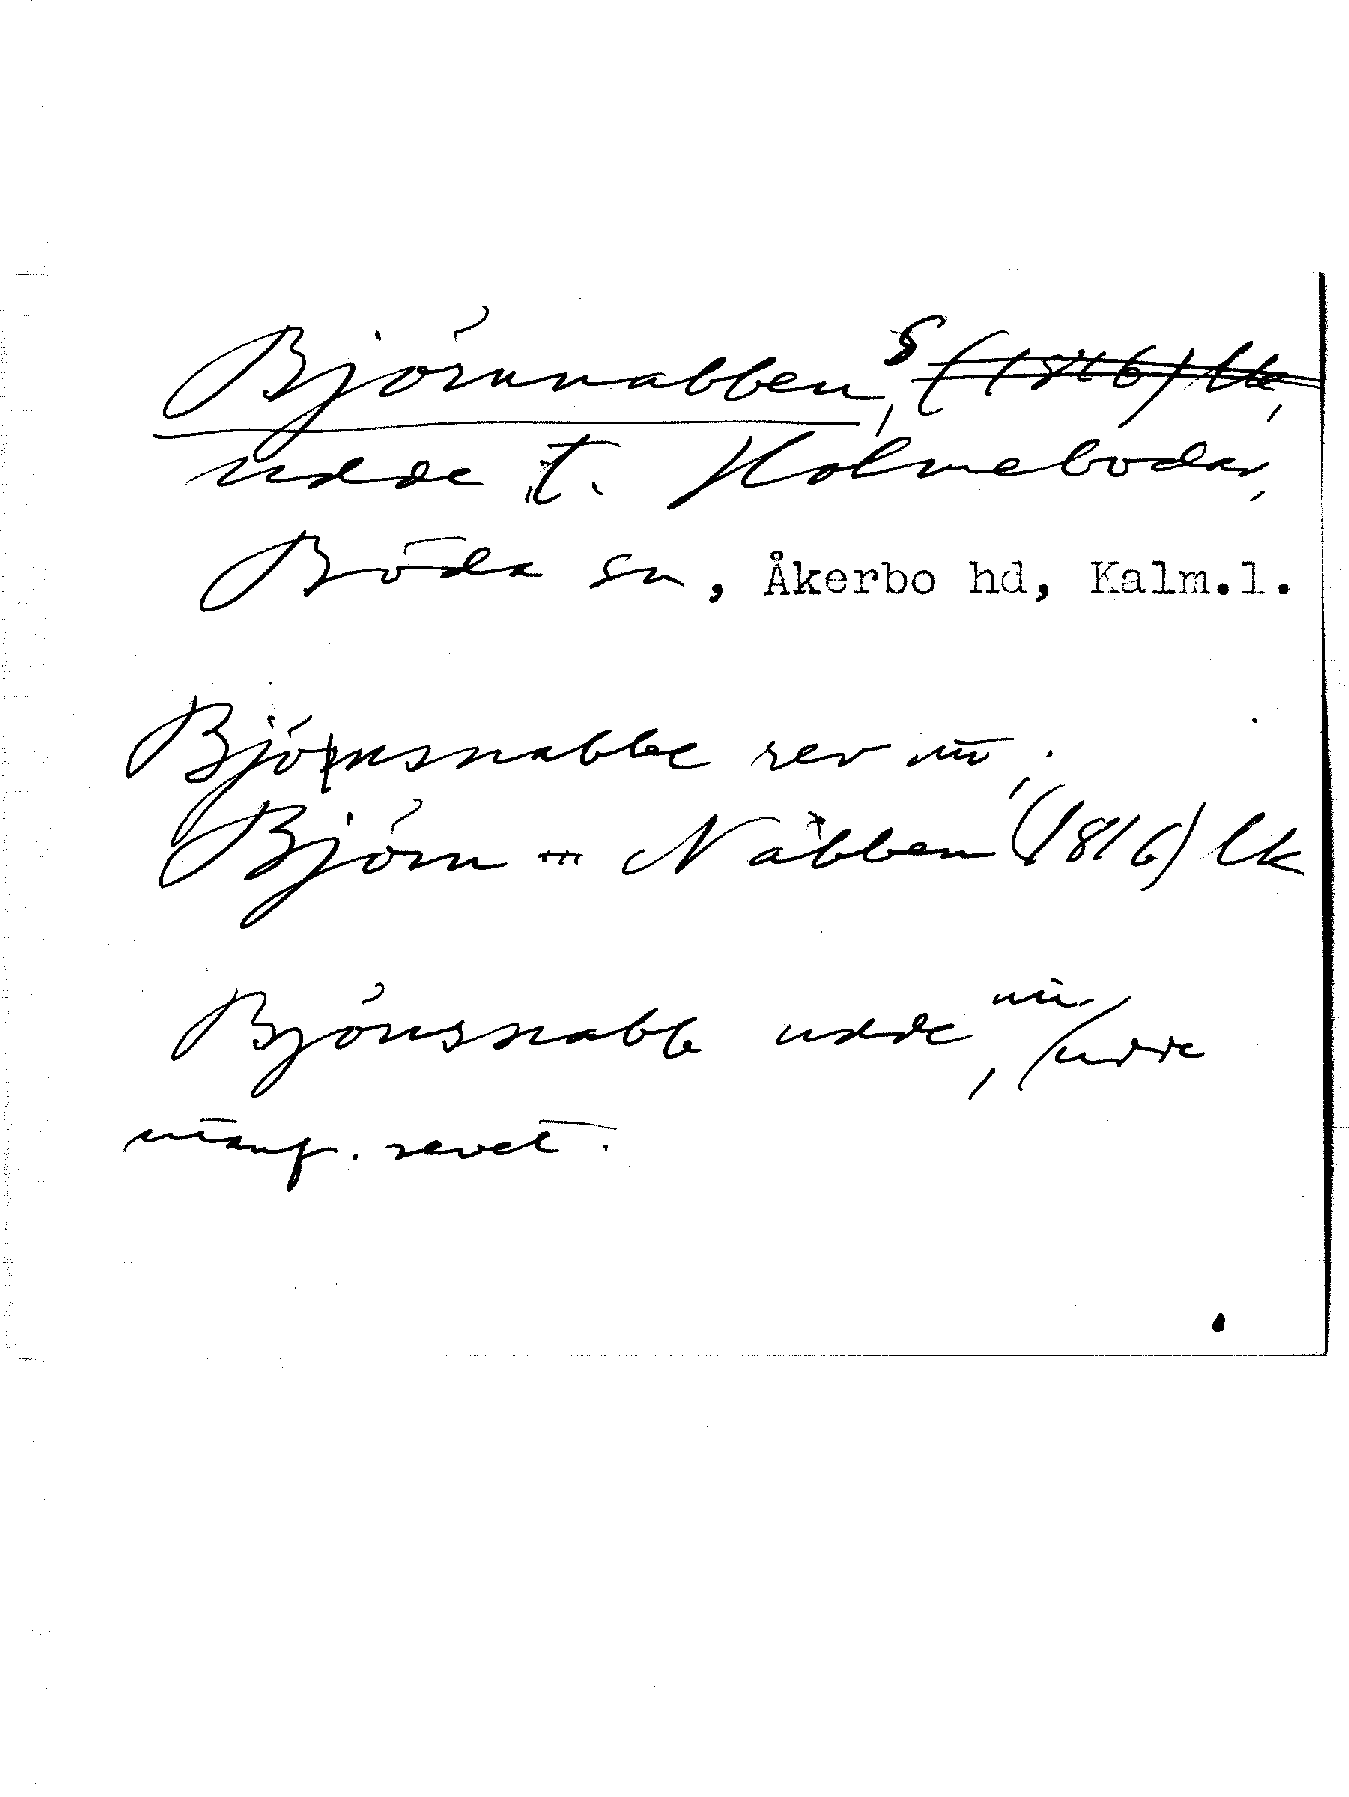 Björnnabben, S (1816) lk,
udde t. Holmebodar,
Böda sn, Åkerbo hd, Kalm.l.
Björnsnabbe rev
Björn = Nabben (1816) lk
Björnsnabb udde, /udde
utanf. revet.